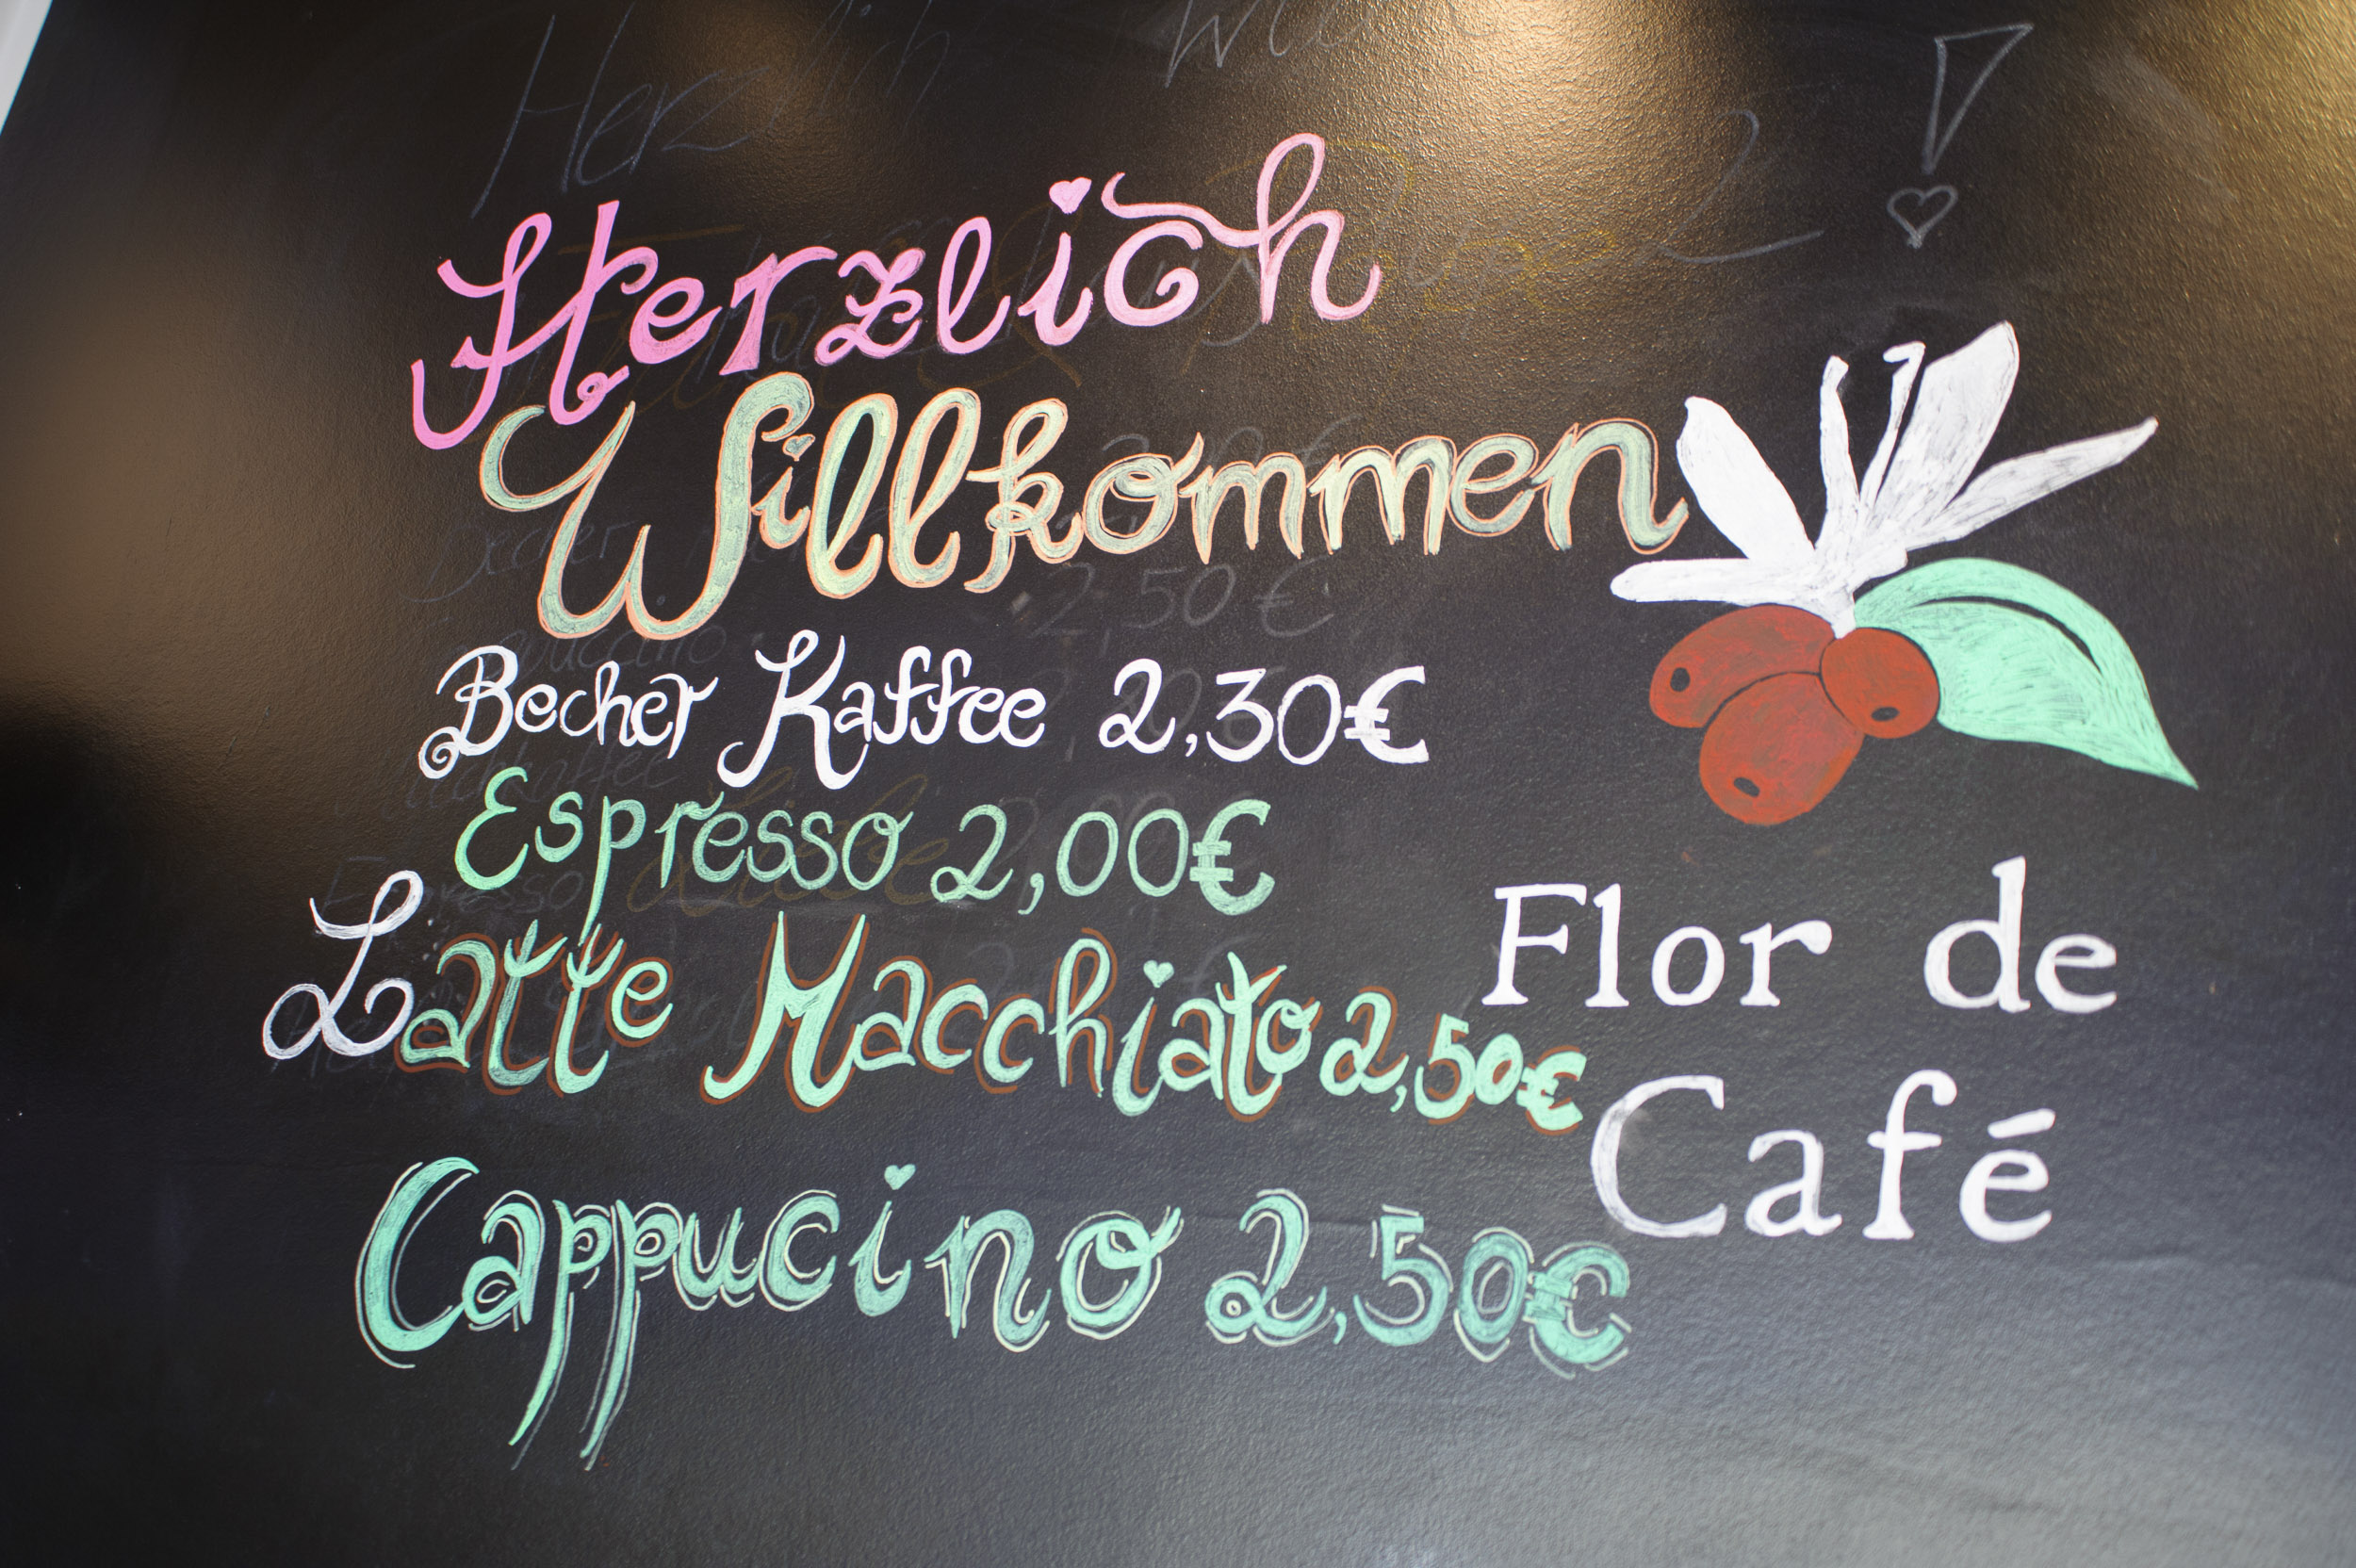 Herzlich
Willkommen
Becher Kaffee 2,30€
Espresso 2,00€
Latte Macchiato 2,50€
Cappucino 2,50€
Flor de
Café